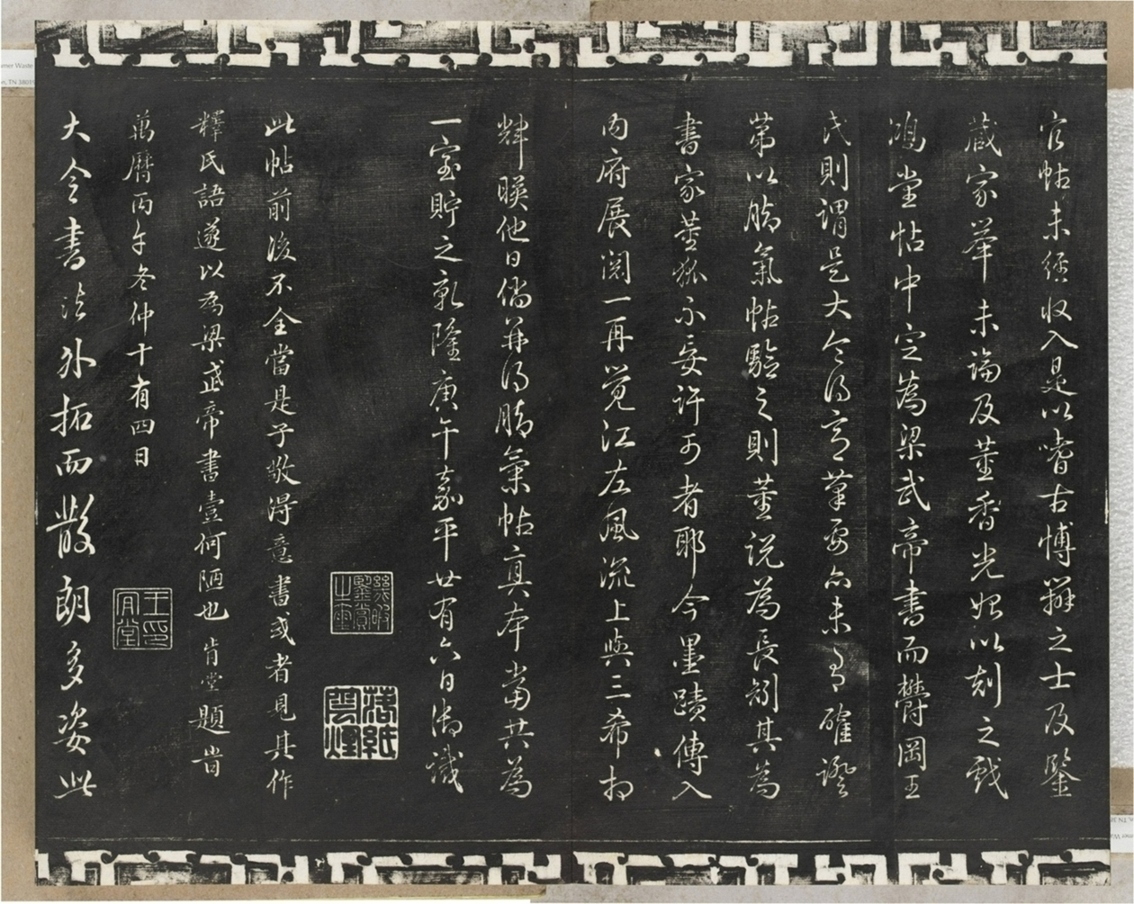 官帖未經收入是以嗜古博辯之士及鑒
藏家華未論及董香光始以刻之戲
鴻堂帖中定為梁武帝書而鬱岡王
氏則謂是大令得意筆要亦未有確證
第以腦氣帖驗之則董說為長劄其為
書家董狐不妄許可者耶今墨蹟傳入
內府展閱一再覺江左風流上與三希相
輝暎他日倘并得腦氣帖真本當共為
一室貯之乾隆庚午嘉平廿有六日御識
幾暇鑒賞之璽
落紙雲煙
此帖前後不全當是子敬得意書或者見其作
釋氏語遂以為梁武帝書壹何陋也肯堂題皆
萬曆丙午冬仲十有四日
王肯堂印
大令書法外拓而散朗多姿此